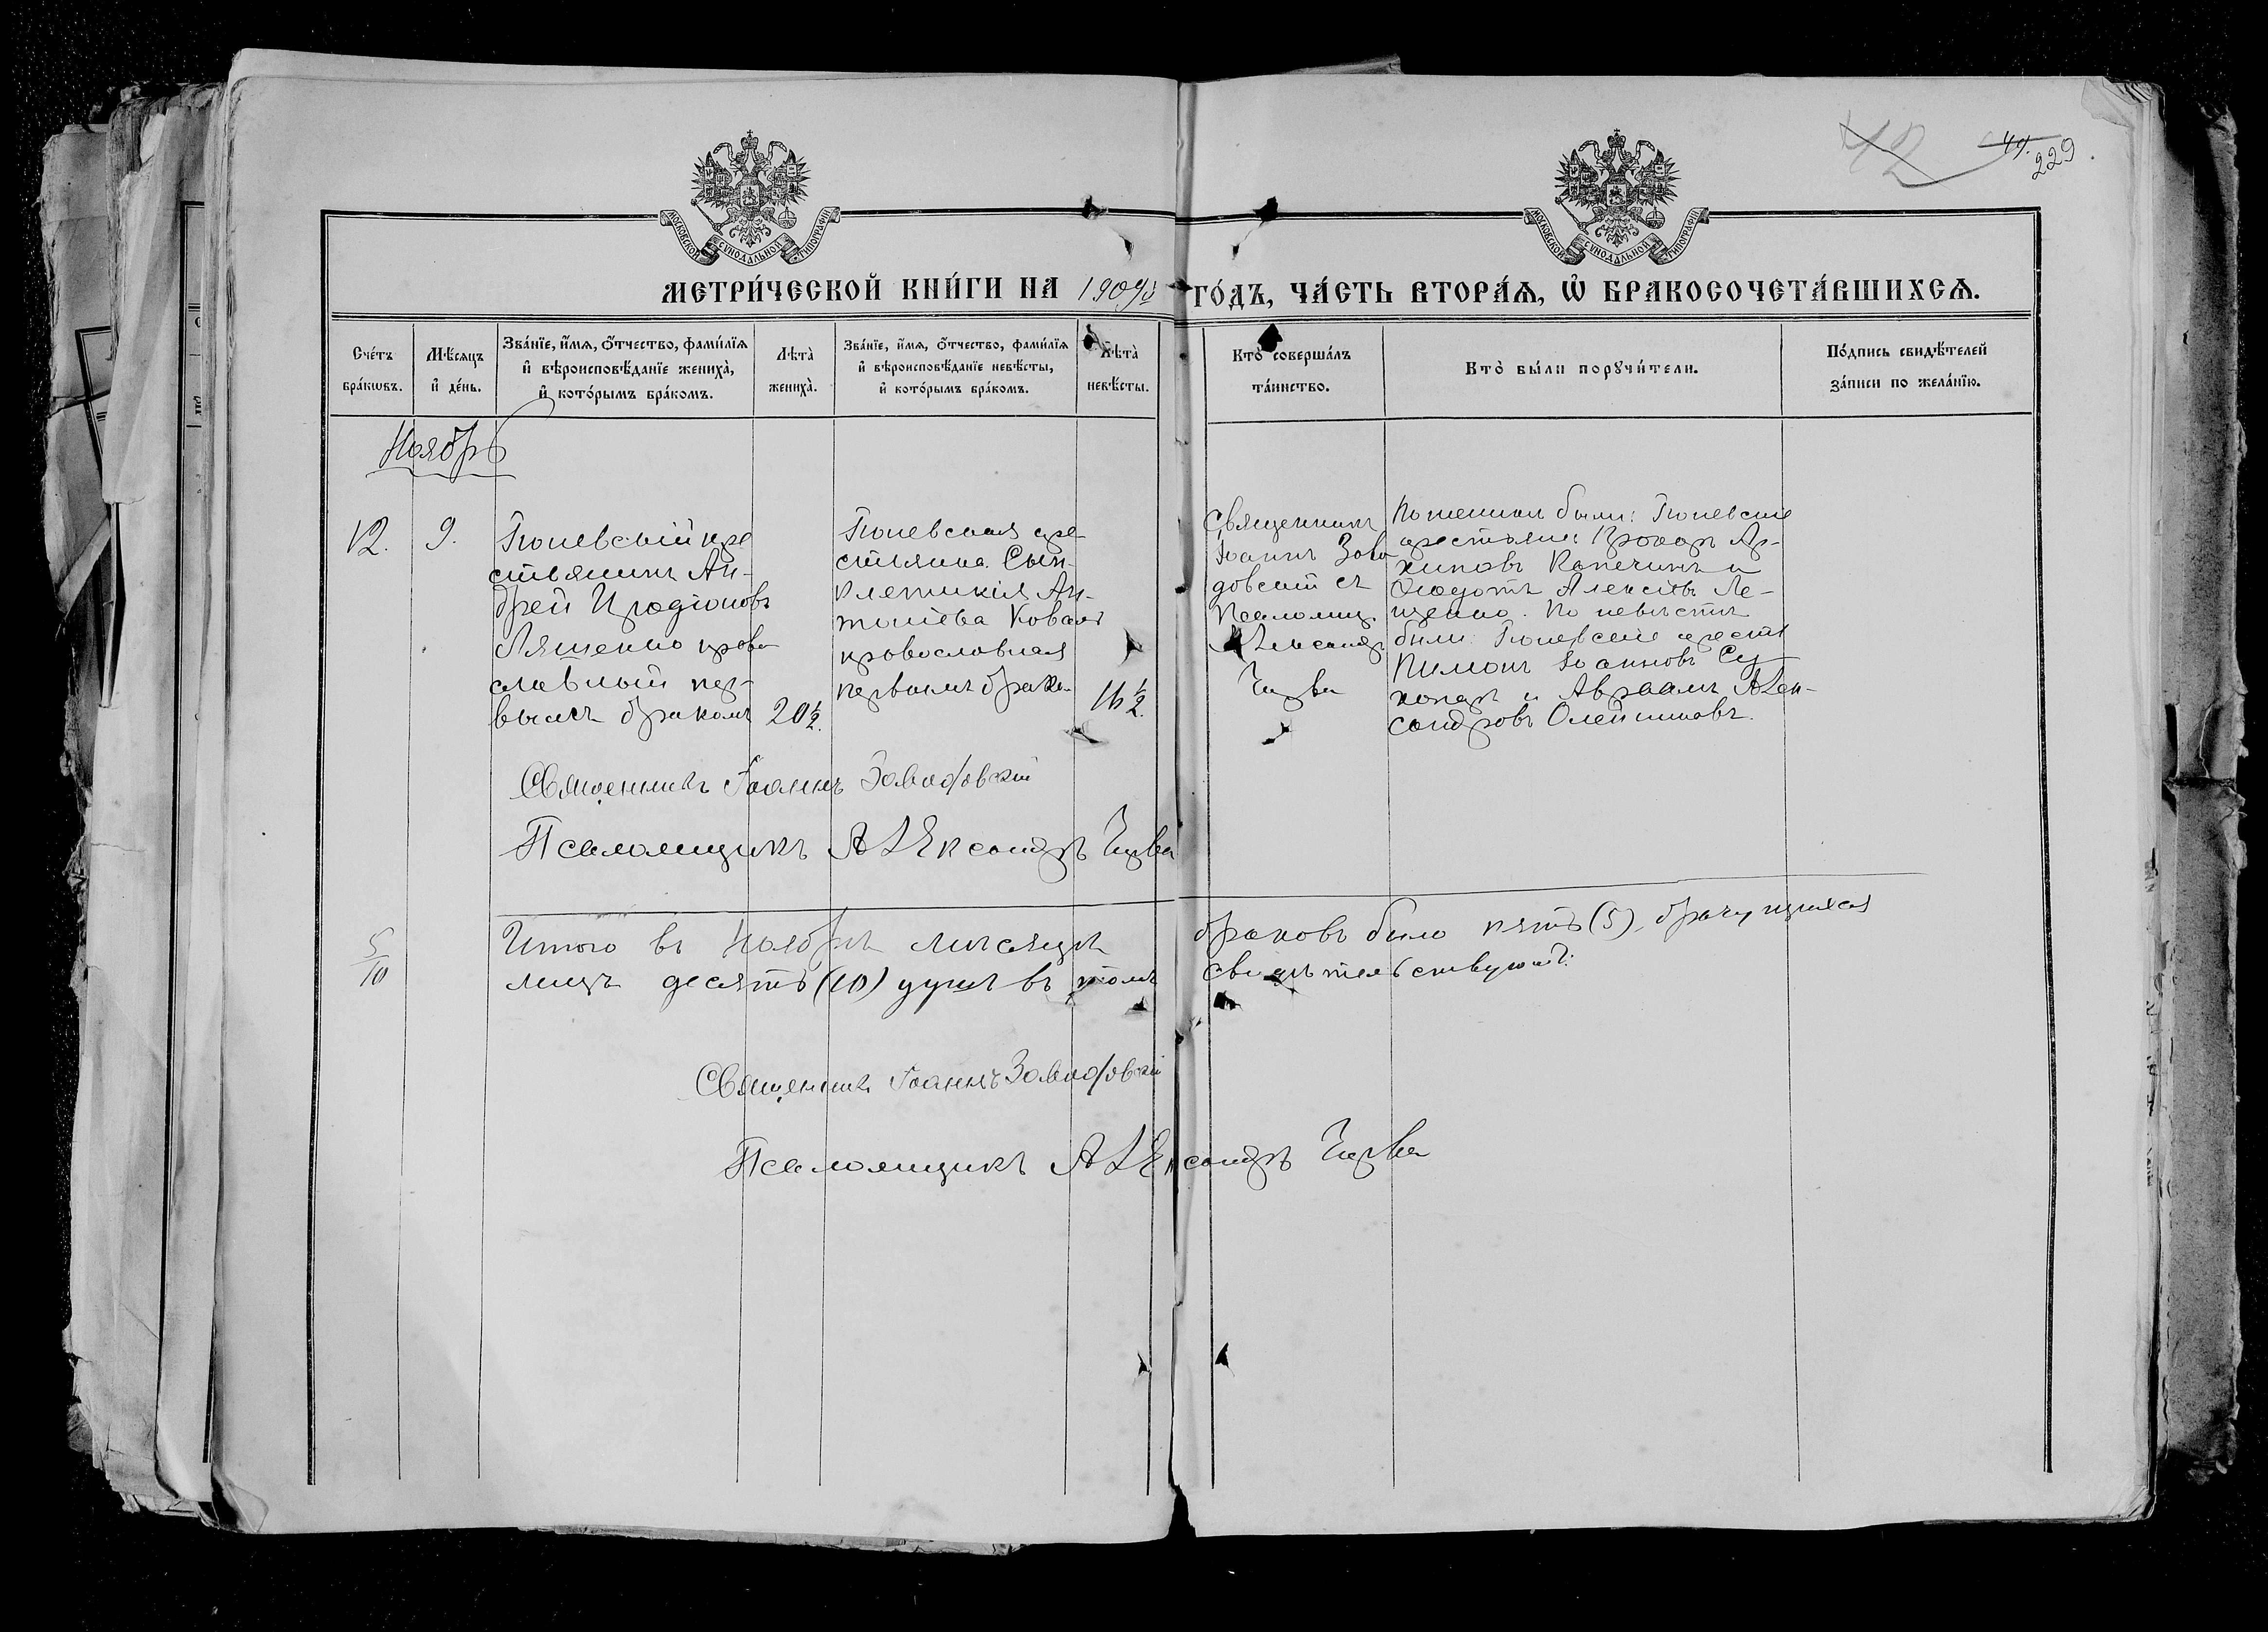 42 44. 229
МОСКОВСКОЙ СѴНОДАЛЬНОЙ ТИПОГРАФІИ
МОСКОВСКОЙ СѴНОДАЛЬНОЙ ТИПОГРАФІИ
МЕТРИ́ЧЕСКОЙ КНИ́ГИ НА 1909й ГО́ДЪ, ЧА́СТЬ ВТОРА́Ѧ, Ѡ҆ БРАКОСОЧЕТА́ВШИХСѦ.
Сче́тъ
бра́кѡвъ.
Мѣ́сяцъ
и҆ де́нь.
Зва́нїе, и҆́мѧ, о҆́тчество, фами́лїѧ
и҆ вѣроисповѣ́данїе жениха̀,
и҆ кото́рымъ бра́комъ.
Лѣта̀
жениха̀.
Зва́нїе, и҆́мѧ, о҆́тчество, фами́лїѧ
и҆ вѣроисповѣ́данїе невѣ́сты,
и҆ кото́рымъ бра́комъ.
Лѣта̀
невѣ́сты.
Кто̀ соверша́лъ
та́инство.
Кто̀ бы́ли порꙋчи́тели.
По́дпись свидѣ́телей
за́писи по жела́нїю.
Ноябрь
12.
9.
кре
стьянинъ Ан-
дрей Иродіоновъ
Ляшенко право
славный пер-
вымъ бракомъ
20½.
кре
стьянка Син-
клитикія Ан-
Коваль
православная
первымъ бракомъ
16½.
Священникъ
Іоаннъ Заво
довскій съ
Псаломщ.
Александр
По женихѣ были:
крестьяне: Прохоръ Ар-
хиповъ и
Ѳеодотъ Алексѣевъ Ле-
щенко. По невѣстѣ
были: крестья
Пименъ Іоанновъ Су
и Авраамъ Алек-
сандровъ Олейниковъ.
Священникъ Іоаннъ Заводовскій
Псаломщикъ Александръ
5/10
Итого въ Ноябрѣ мѣсяцѣ браковъ было пять (5), брачущихся
лицъ десять (10) душъ въ томъ свидѣтельствуютъ:
Священникъ Іоаннъ Заводовскій
Псаломщикъ Александръ